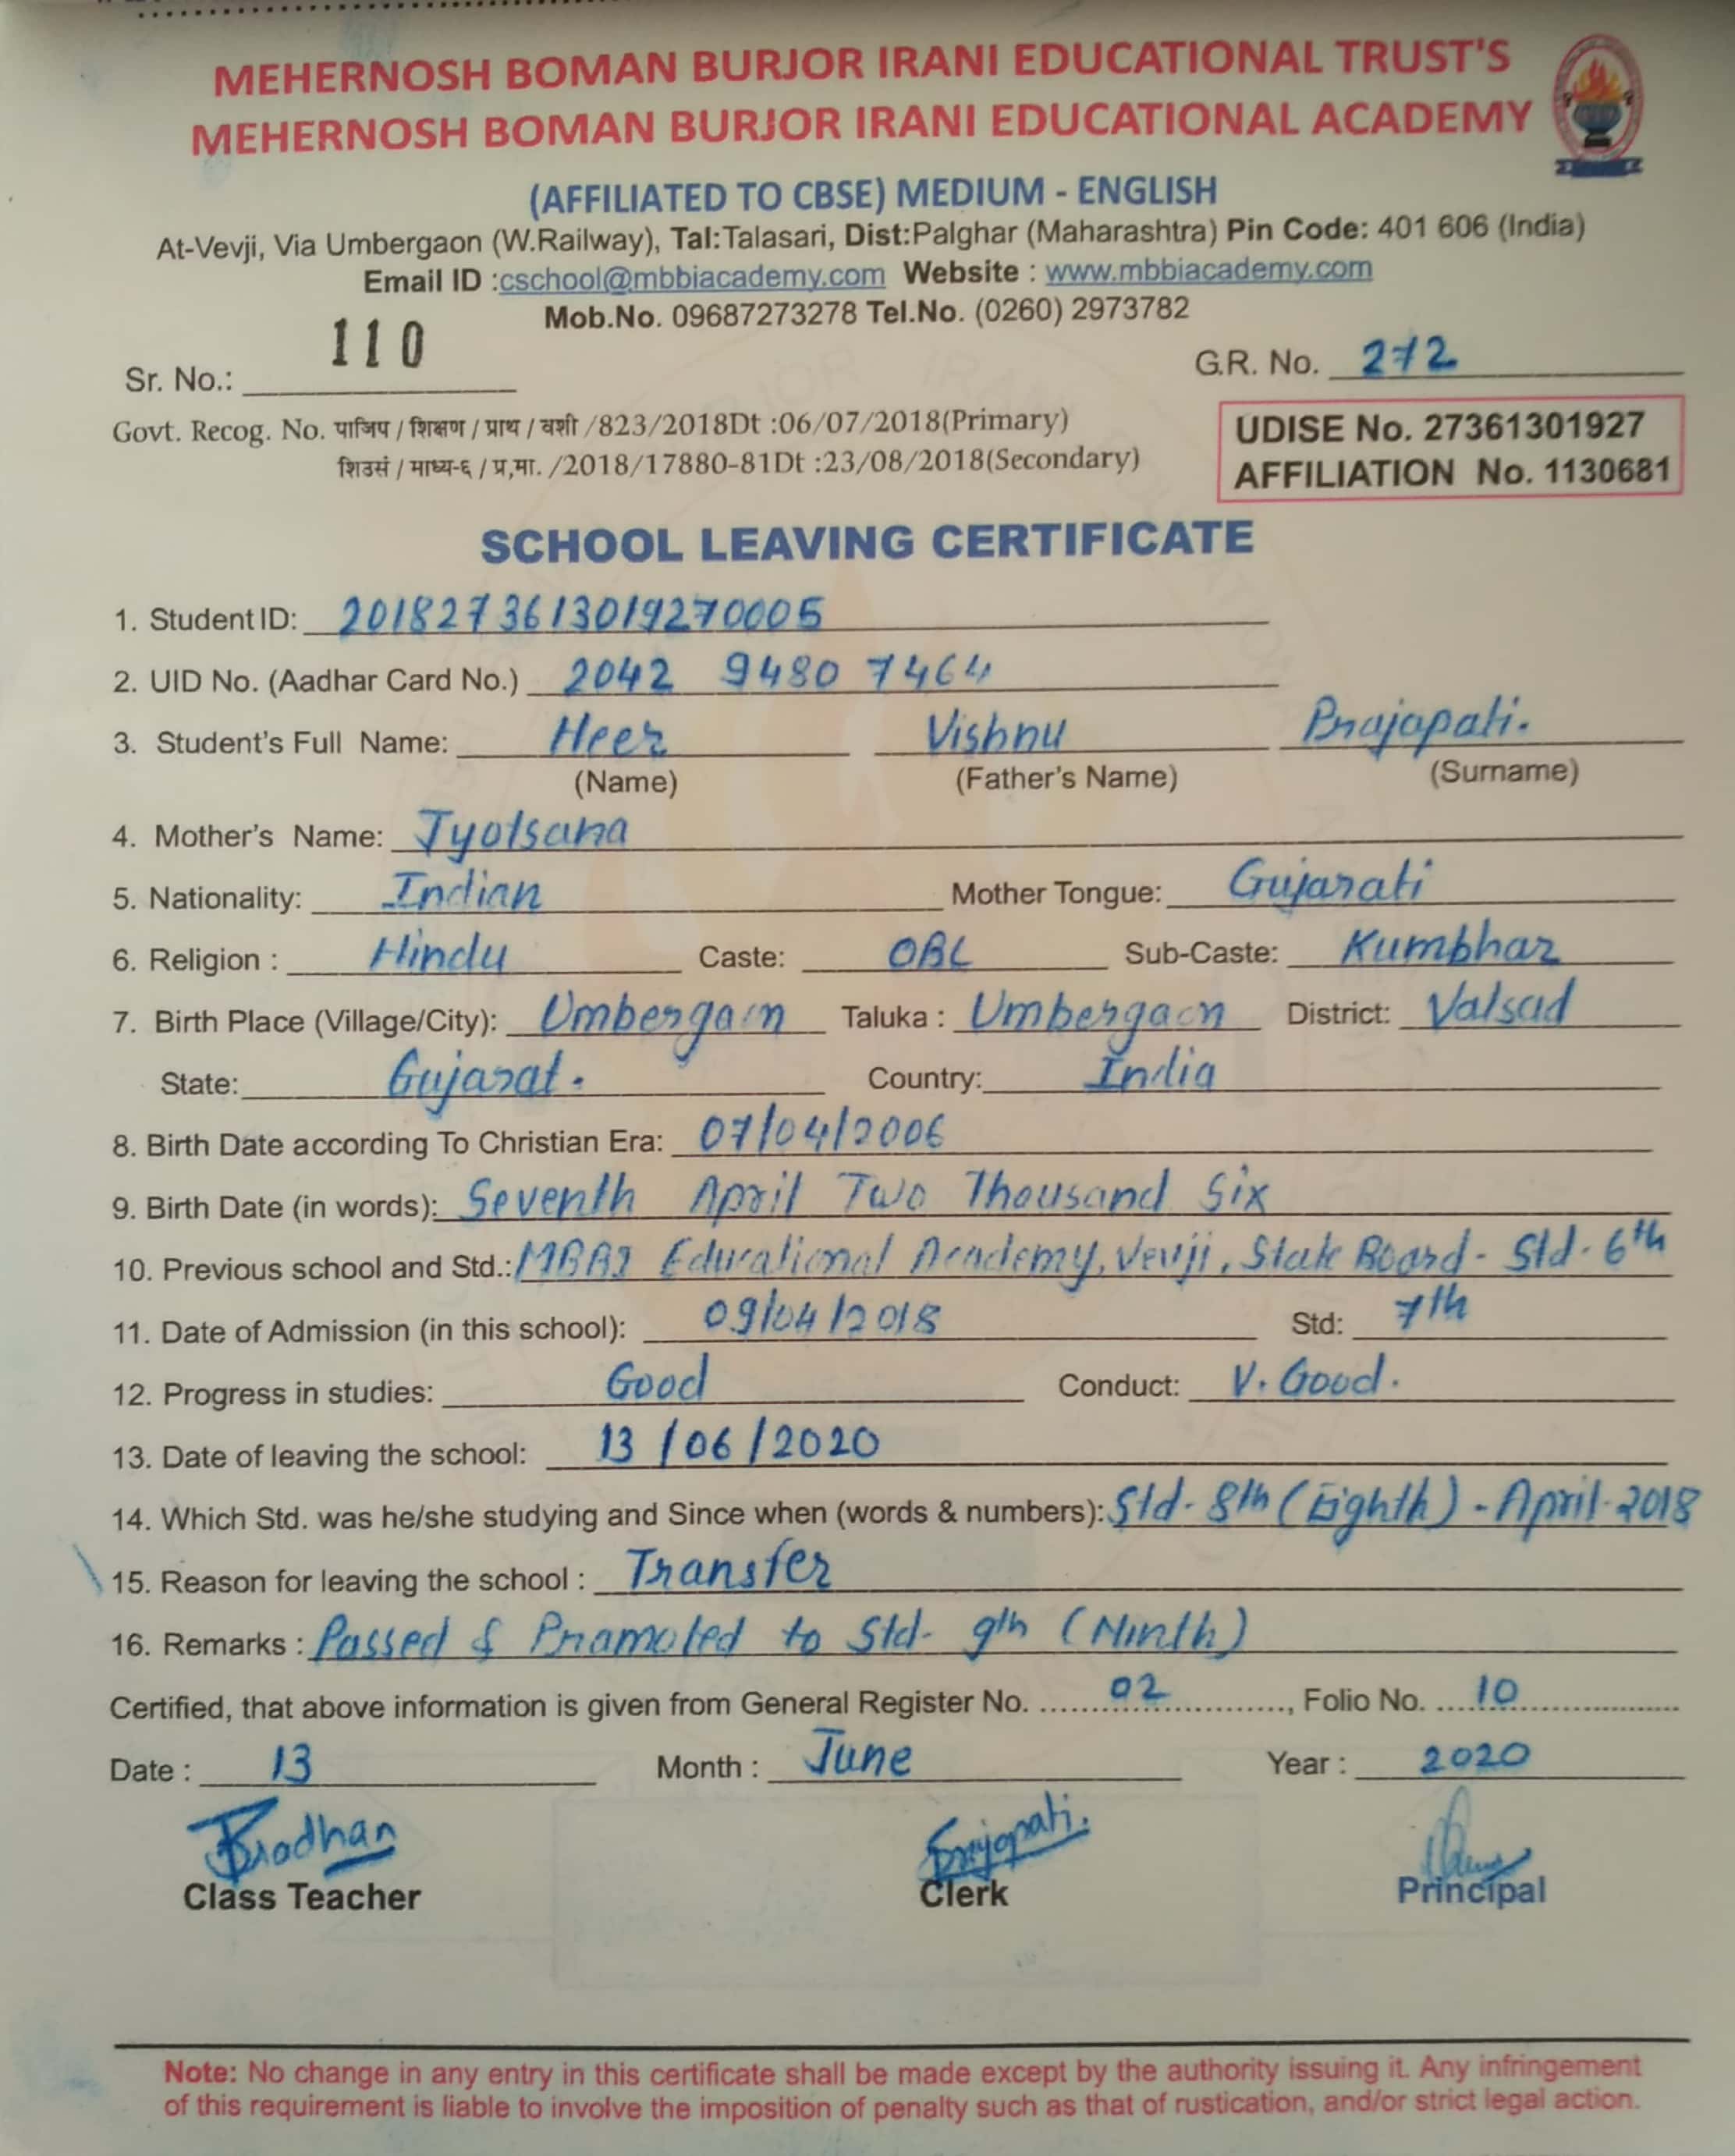 MEHERNOSH BOMAN BURJOR IRANI EDUCATIONAL TRUST'S
MEHERNOSH BOMAN BURJOR IRANI EDUCATIONAL ACADEMY
(AFFILIATED TO CBSE) MEDIUM - ENGLISH
At-Vevji, Via Umbergaon (W.Railway), Tal:Talasari, Dist:Palghar (Maharashtra) Pin Code: 401 606 (India)
Email ID :cschool@mbbiacademy.com Website : www.mbbiacademy.com
Mob.No. 09687273278 Tel.No. (0260) 2973782
Sr. No.: 110 G.R. No. 272
Govt. Recog. No. पाजिप / शिक्षण / प्राथ / वशी /823/2018Dt :06/07/2018(Primary)
शिउसं / माध्य-६ / प्र,मा. /2018/17880-81Dt :23/08/2018(Secondary)
UDISE No. 27361301927
AFFILIATION No. 1130681
SCHOOL LEAVING CERTIFICATE
1. Student ID: 2018273613019270005
2. UID No. (Aadhar Card No.) 2042 9480 7464
3. Student's Full Name: Heer Vishnu Prajapati.
(Name) (Father's Name) (Surname)
4. Mother's Name: Jyotsana
5. Nationality: Indian Mother Tongue: Gujarati
6. Religion : Hindu Caste: OBC Sub-Caste: Kumbhar
7. Birth Place (Village/City): Umbergaon Taluka : Umbergaon District: Valsad
State: Gujarat. Country: India
8. Birth Date according To Christian Era: 07/04/2006
9. Birth Date (in words): Seventh April Two Thousand Six
10. Previous school and Std.: MBBI Educational Academy, Vevji, State Board - Std - 6th
11. Date of Admission (in this school): 09/04/2018 Std: 7th
12. Progress in studies: Good Conduct: V. Good.
13. Date of leaving the school: 13/06/2020
14. Which Std. was he/she studying and Since when (words & numbers): Std- 8th (Eighth) - April-2018
15. Reason for leaving the school : Transfer
16. Remarks : Passed & Pramoted to Std- 9th (Ninth)
Certified, that above information is given from General Register No. ....02...., Folio No. ....10....
Date : 13 Month : June Year : 2020
Prajapati.
Class Teacher Clerk Principal
Note: No change in any entry in this certificate shall be made except by the authority issuing it. Any infringement
of this requirement is liable to involve the imposition of penalty such as that of rustication, and/or strict legal action.